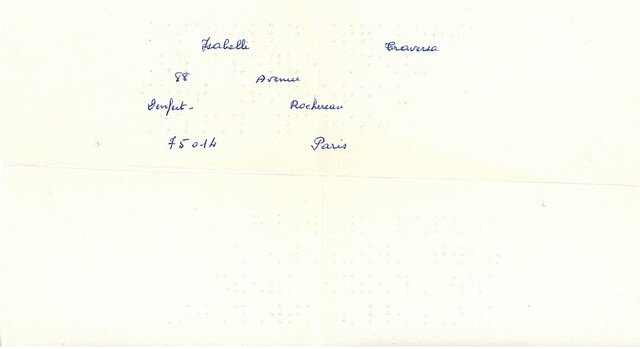 Isabelle Traversa
88 Avenue
Denfert- Rochereau
75014 Paris